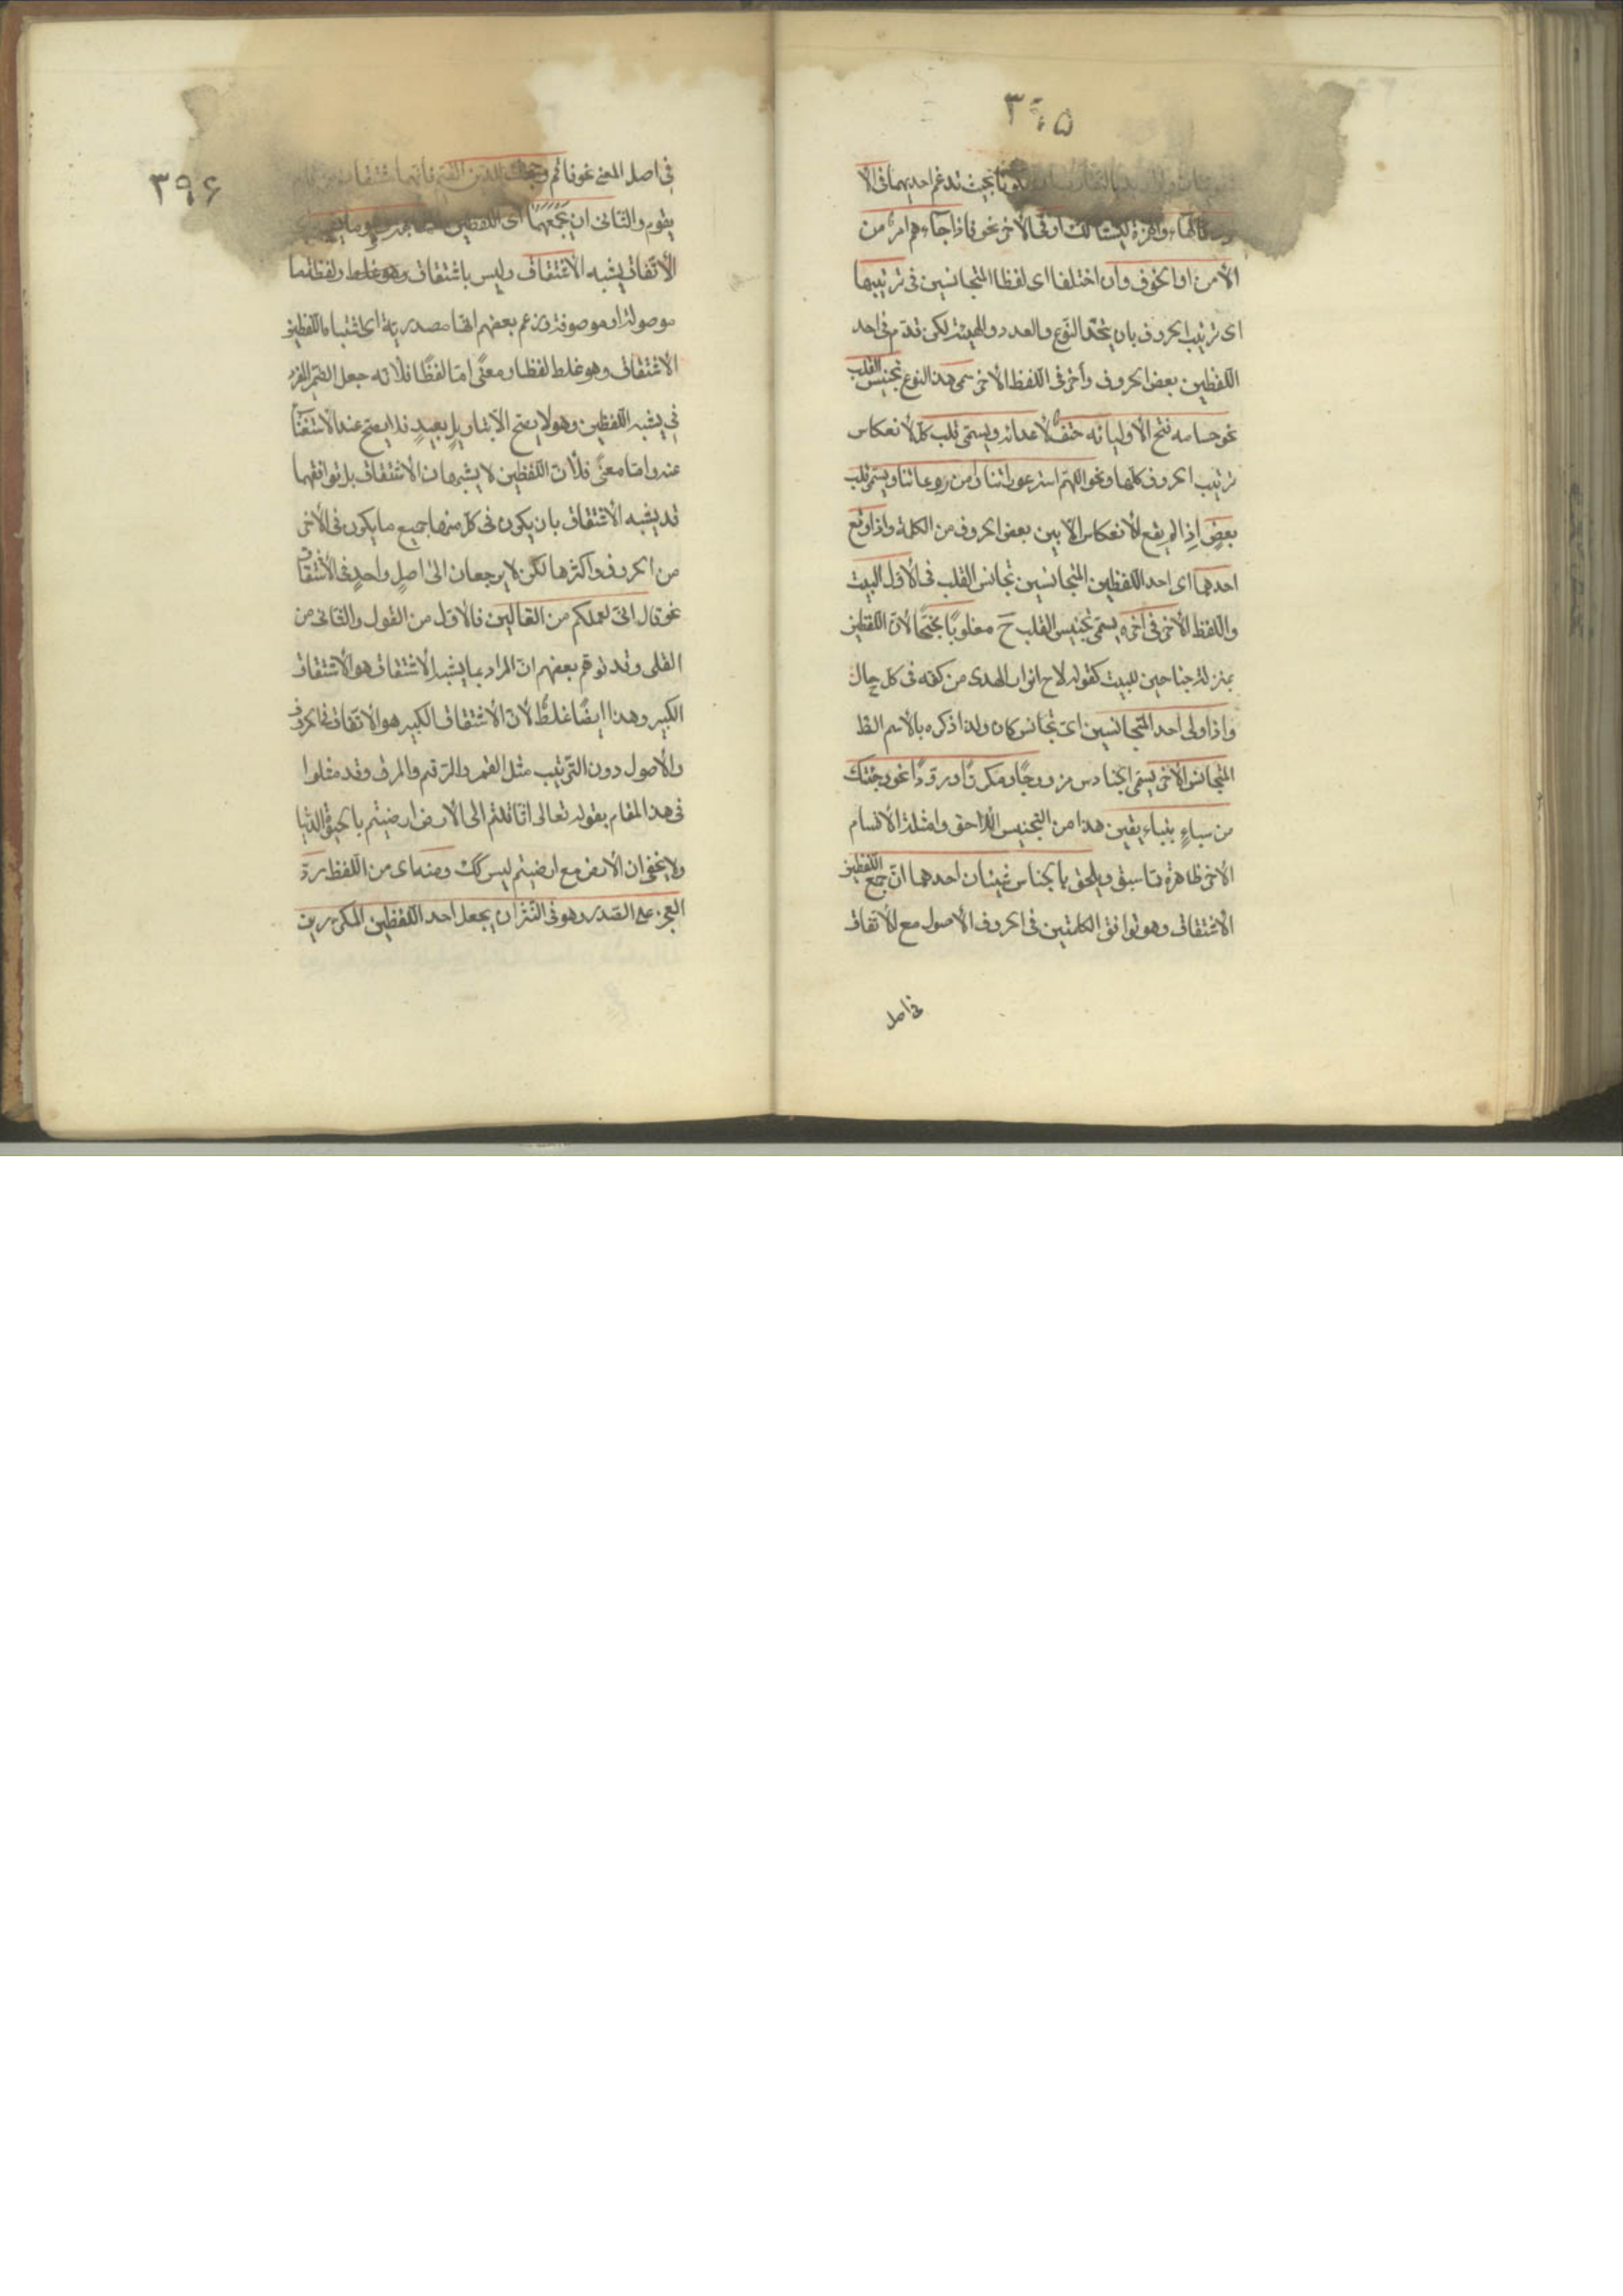 ٣٩٥
بحيث تدغم احديهما فى الا
والهمزة ليستا كك او فى الآخر نحو فاذا جاءهم امر من
الأمن او الخوف وان اختلفا اى لفظا المتجانسين فى ترتيبها
اى ترتيب الحروف بان يتحد النوع والعدد والهيئة لكن قدم فى احد
اللفظين بعض الحروف وأخر فى اللفظ الآخر سمى هذا النوع تجنيس القلب
نحو حسامه فتح لأوليائه حتف لأعدائه ويسمى قلب كل لأنعكاس
ترتيب الحروف كلها ونحو اللهم استر عوراتنا وآمن روعاتنا ويسمى قلب
بعضٍ اذ لم يقع الأنعكاس الا بين بعض الحروف من الكلمة واذا وقع
احدهما اى احد اللفظين المتجانسين تجانس القلب فى الأول البيت
واللفظ الآخر فى آخره يسمى تجنيس القلب ح مقلوبًا مجنحًا لأن اللفظين
بمنزلة جناحين للبيت كقوله لاح انوار الهدى من كفه فى كل حال
واذا ولى احد المتجانسين اى تجانس كان ولذا ذكره بالأسم الظ
المتجانس الآخر يسمى الجناس مزدوجًا ومكررًا ومرددًا نحو وجئتك
من سباءٍ بنباء يقين هذا من التجنيس اللاحق وامثلة الأقسام
الأخر ظاهرة مما سبق ويلحق بالجناس شيئان احدهما ان جمع اللفظين
الأشتقاق وهو توافق الكلمتين فى الحروف الأصول مع الأتفاق
فى اصل
٣٩۶
فى اصل المعنى نحو فاقم وجهك للدين القيم فانهما مشتقان من قام
يقوم والثانى ان يجمعهما اى اللفظين
الأتفاق يشبه الأشتقاق وليس باشتقاق ولفظة ما
موصولة او موصوفة وزعم بعضهم انها مصدرية اى اشتباه اللفظين
الأشتقاق وهو غلط لفظا ومعنًى اما لفظًا فلأنه جعل الضمير المفرد
فى يشبه اللفظين وهو لا يصح الا بتاويلٍ بعيدٍ فلا يصح عند الأستغناء
عنه واما معنًى فلأن اللفظين لا يشبهان الأشتقاق بل توافقهما
قد يشبه الأشتقاق بان يكون فى كل منهما جميع ما يكون فى الآخر
من الحروف او اكثرها لكن لا يرجعان الى اصلٍ واحدٍ فى الأشتقاق
نحو قال انى لعملكم من القالين فالأول من القول والثانى من
القلى وقد توهم بعضهم ان المراد بما يشبه الأشتقاق هو الأشتقاق
الكبير وهذا ايضًا غلطٌ لأن الأشتقاق الكبير هو الأتفاق فى الحروف
والأصول دون الترتيب مثل القمر والرقم والمرق وقد مثلوا
فى هذا المقام بقوله تعالى اثاقلتم الى الأرض ارضيتم بالحيوة الدنيا
ولا يخفى ان الأرض مع ارضيتم ليس كك ومنه اى من اللفظ رد
العجز على الصدر وهو فى النثر ان يجعل احد اللفظين المكررين